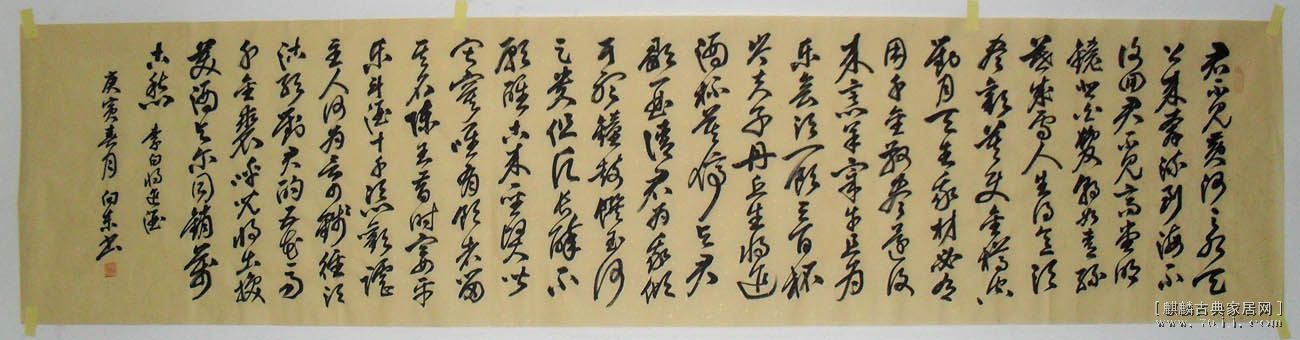 君不见黄河之水天
上来奔流到海不
复回君不见高堂明
镜悲白发朝如青丝
暮成雪人生得意须
尽欢莫使金樽空
对月天生我材必有
用千金散尽还复
来烹羊宰牛且为
乐会须一饮三百杯
岑夫子丹丘生将进
酒杯莫停与君
歌一曲请君为我倾
耳听钟鼓馔玉何
足贵但愿长醉不
愿醒古来圣贤皆
寂寞唯有饮者留
其名陈王昔时宴平
乐斗酒十千恣欢谑
主人何为言少钱径须
沽取对君酌五花马
千金裘呼儿将出换
美酒与尔同销万
古愁 李白将进酒
庚寅春月 向东书
[麒麟古典家居网]
www.7011.com